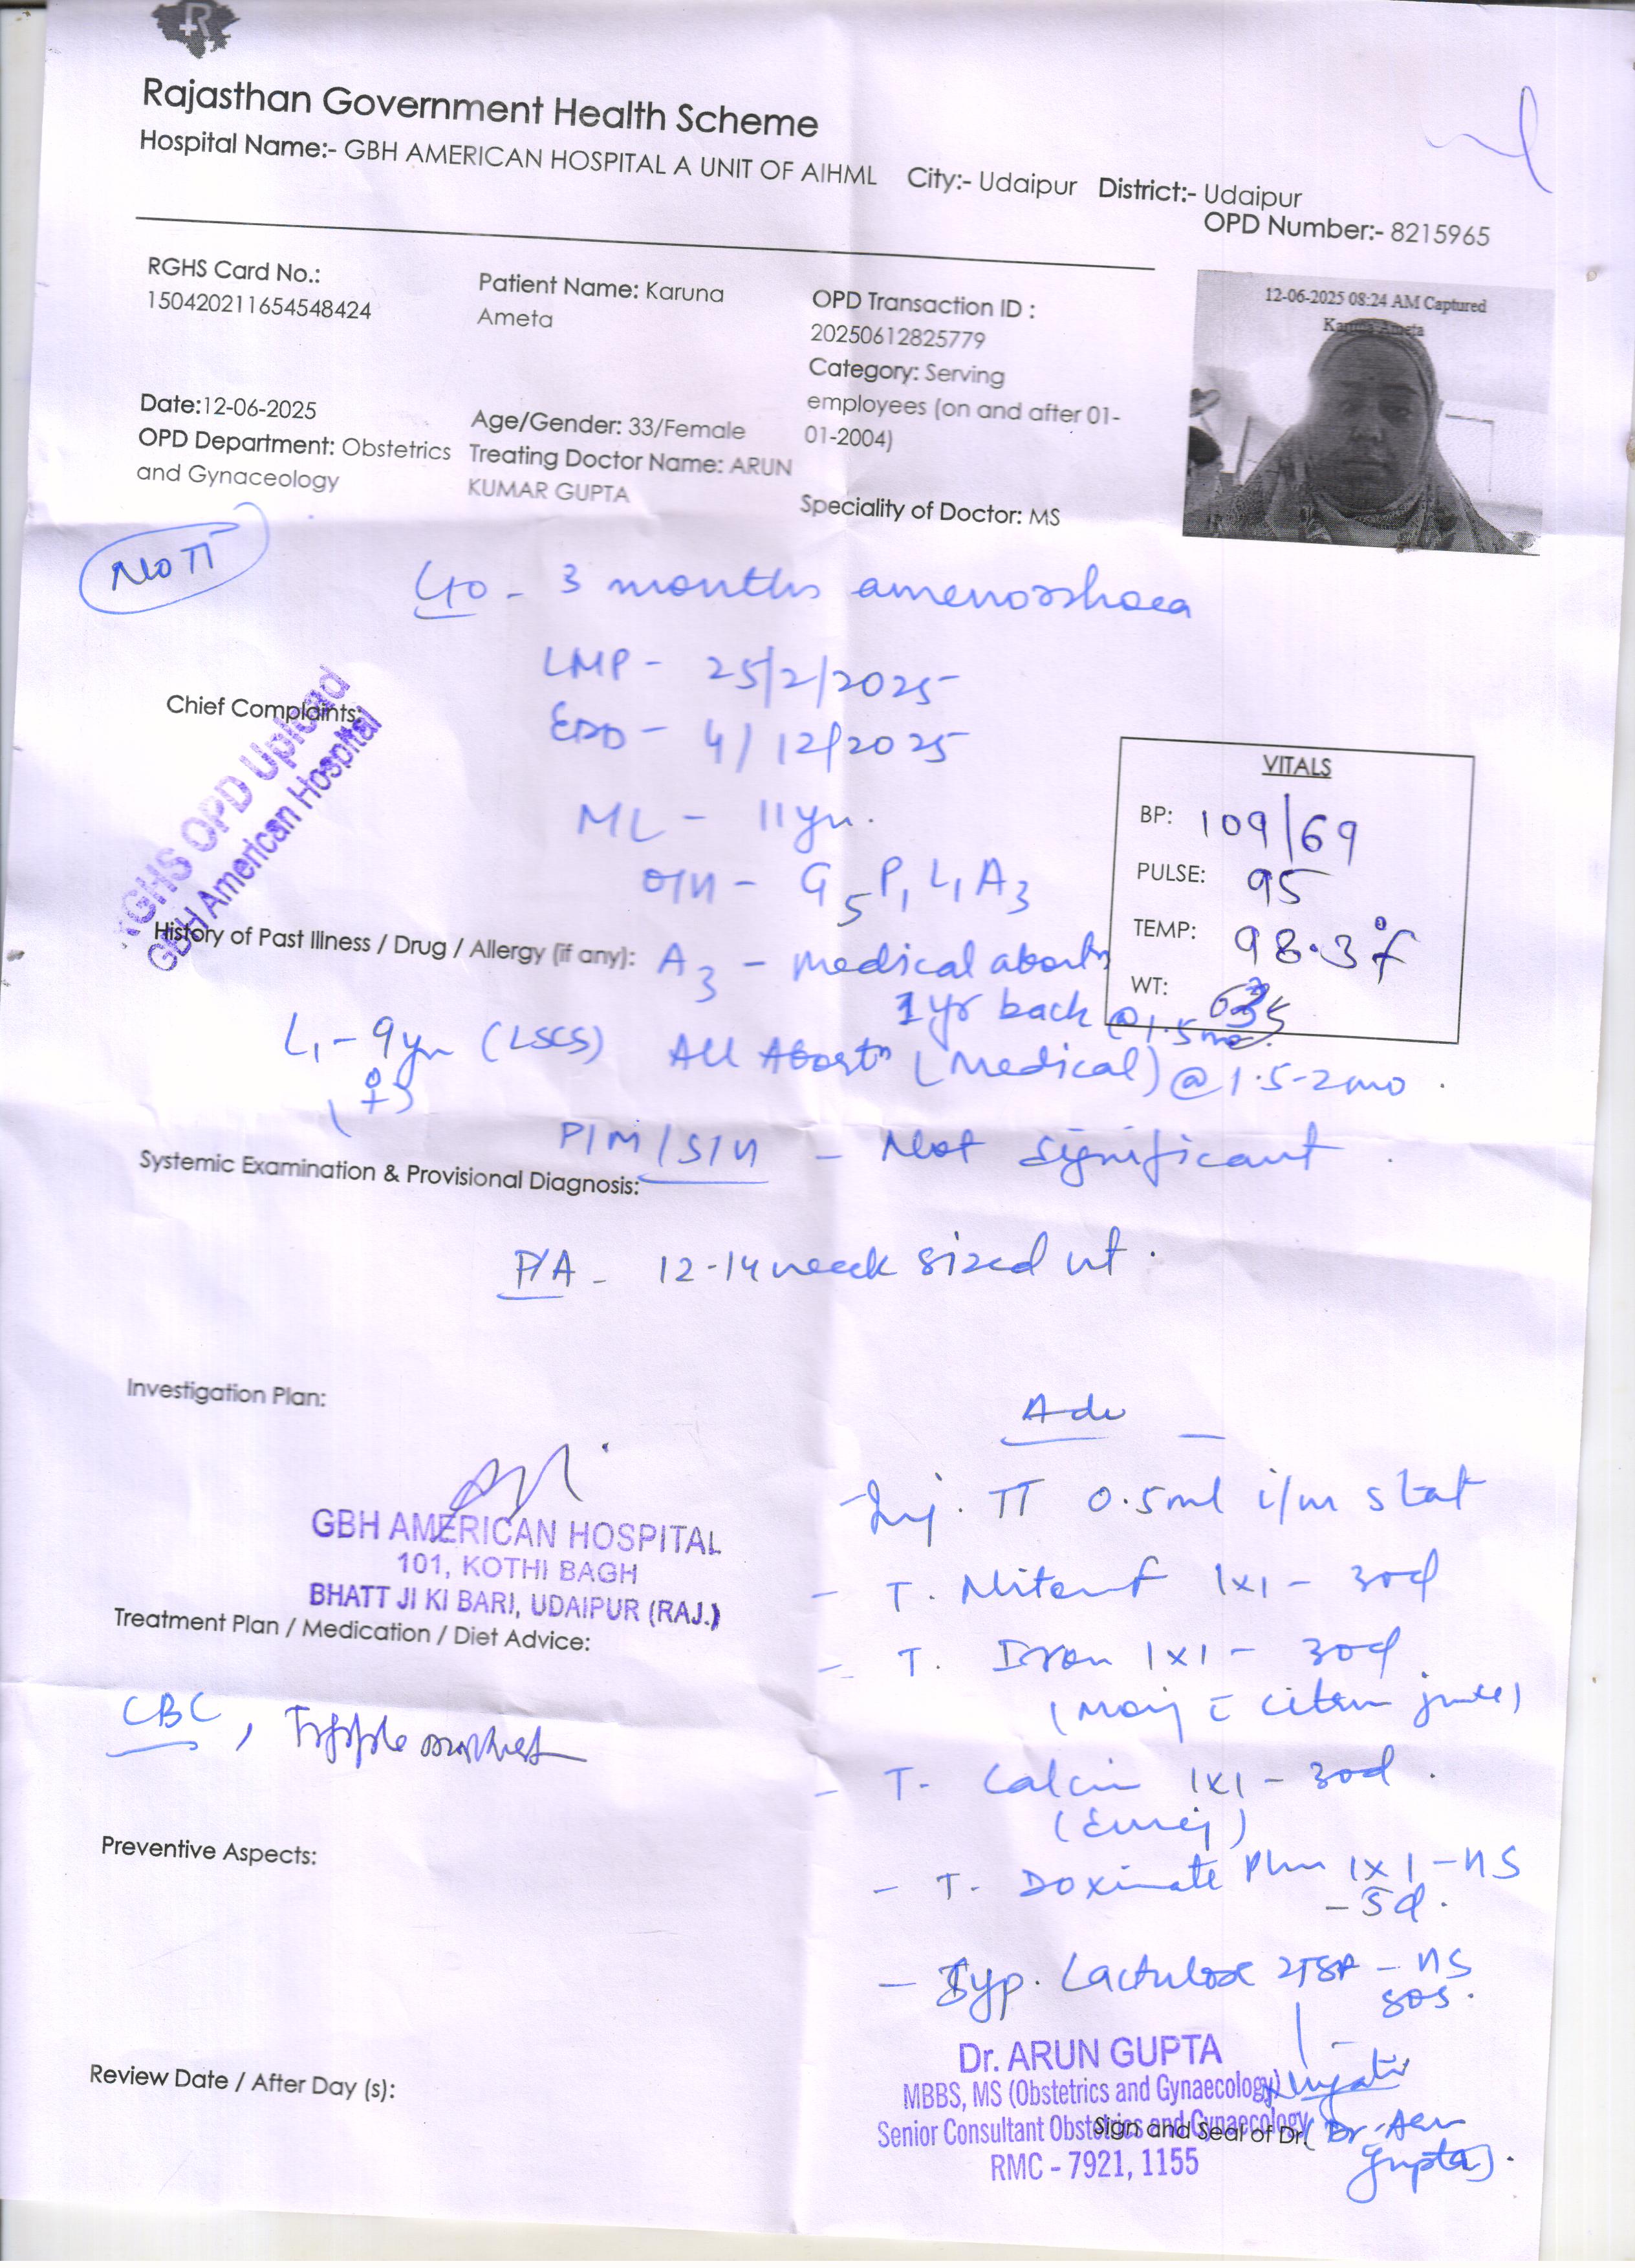 Rajasthan Government Health Scheme
Hospital Name:- GBH AMERICAN HOSPITAL A UNIT OF AIHML City:- Udaipur District:- Udaipur
OPD Number:- 8215965
RGHS Card No.:
150420211654548424
Patient Name: Karuna
Ameta
OPD Transaction ID :
20250612825779
Category: Serving
employees (on and after 01-
01-2004)
12-06-2025 08:24 AM Captured
Karuna Ameta
Date:12-06-2025
OPD Department: Obstetrics
and Gynaceology
Age/Gender: 33/Female
Treating Doctor Name: ARUN
KUMAR GUPTA
Speciality of Doctor: MS
No TT
3 months amenorrhoea
LMP - 25/2/2025
Chief Complaints:
EDD - 4/12/2025
RGHS OPD Upload
GBH American Hospital
ML - 11yr.
O/H - G5 P1 L1 A3
VITALS
BP: 109/69
PULSE: 95
TEMP: 98.3°f
WT:
History of Past Illness / Drug / Allergy (if any):
A3 - medical abortn
1yr back @1.5mo.
L1 - 9yr (LSCS) All Abortn (Medical) @1.5-2mo.
(♀)
P/M/S/H - Not significant.
Systemic Examination & Provisional Diagnosis:
P/A - 12-14 week sized ut.
Investigation Plan:
Adv
GBH AMERICAN HOSPITAL
101, KOTHI BAGH
BHATT JI KI BARI, UDAIPUR (RAJ.)
- Inj. TT 0.5ml i/m stat
- T. 1x1 - 30d
Treatment Plan / Medication / Diet Advice:
- T. Iron 1x1 - 30d.
CBC,
- T. 1x1 - 30d.
Preventive Aspects:
- T. Doxinate Plus 1x1 - HS
- 5d.
- Syp. Lactulose 2TSF - HS
SOS.
Review Date / After Day (s):
Dr. ARUN GUPTA
MBBS, MS (Obstetrics and Gynaecology)
Senior Consultant Obstetrics and Gynaecology
RMC - 7921, 1155
Sign and Seal of Dr.
(Dr. Gupta).